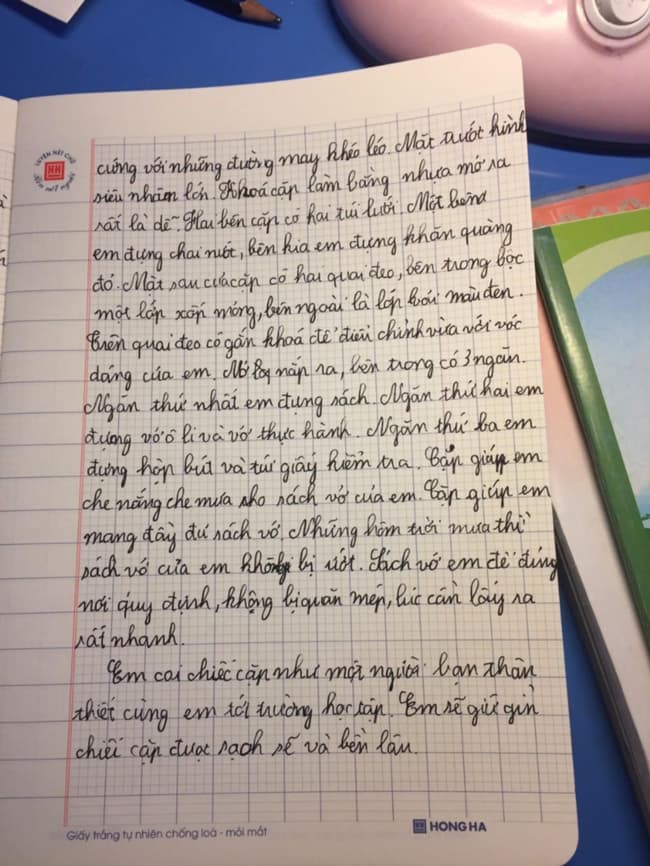 LUYỆN NÉT CHỮ
RÈN NẾT NGƯỜI
HH
cứng với những đường may khéo léo. Mặt trước hình
siêu nhân lớn. Khoá cặp làm bằng nhựa mở ra
rất là dễ. Hai bên cặp có hai túi lưới. Một bên
em đựng chai nước, bên kia em đựng khăn quàng
đỏ. Mặt sau của cặp có hai quai đeo, bên trong bọc
một lớp xốp mỏng, bên ngoài là lớp vải màu đen.
Trên quai đeo có gắn khoá để điều chỉnh vừa với vóc
dáng của em. Mở nắp ra, bên trong có 3 ngăn.
Ngăn thứ nhất em đựng sách. Ngăn thứ hai em
đựng vở ô li và vở thực hành. Ngăn thứ ba em
đựng hộp bút và túi giấy kiểm tra. Cặp giúp em
che nắng che mưa cho sách vở của em. Cặp giúp em
mang đầy đủ sách vở. Những hôm trời mưa thì
sách vở của em không bị ướt. Sách vở em để đúng
nơi quy định, không bị quăn mép, lúc cần lấy ra
rất nhanh.
Em coi chiếc cặp như một người bạn thân
thiết cùng em tới trường học tập. Em sẽ giữ gìn
chiếc cặp được sạch sẽ và bền lâu.
Giấy trắng tự nhiên chống loá - mỏi mắt
HH HONG HA